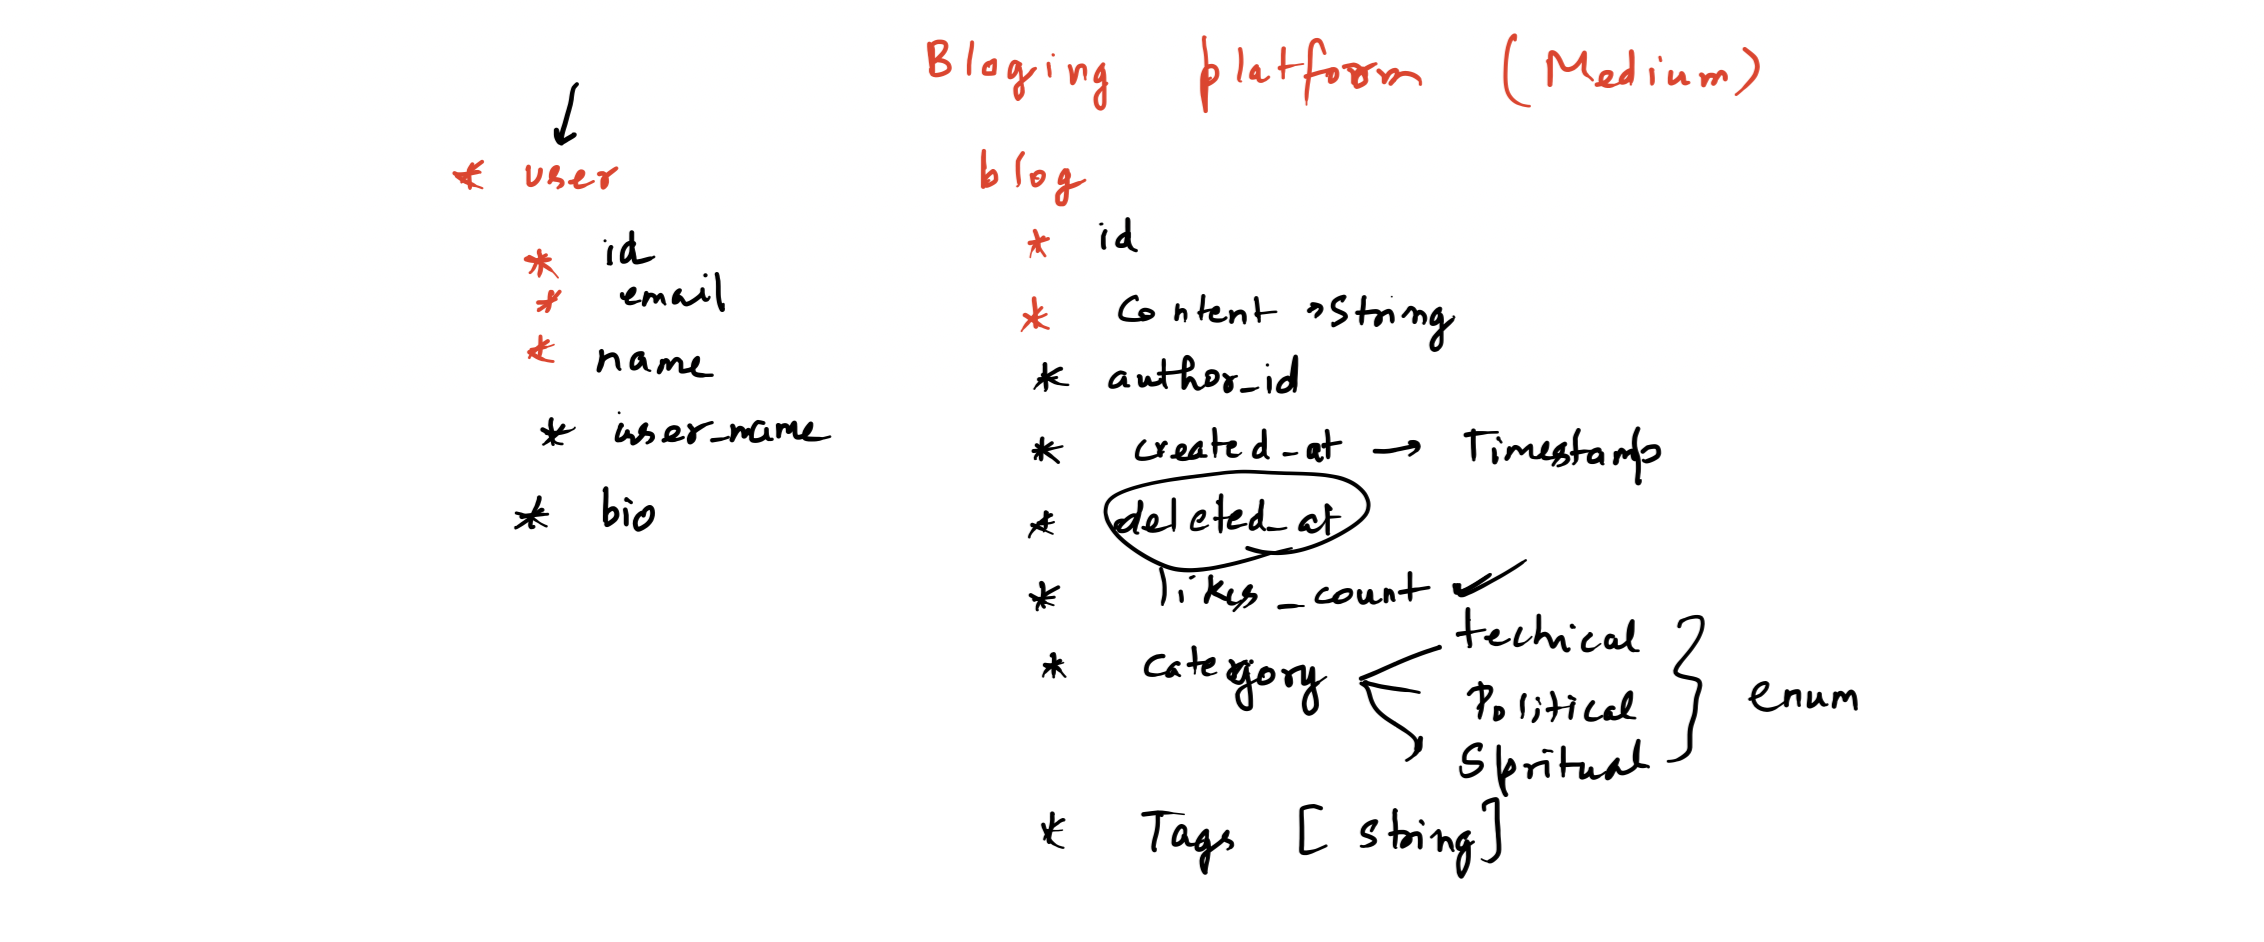 Bloging platform (Medium)
* user
* id
* email
* name
* user_name
* bio
blog
* id
* Content → String
* author_id
* created_at → Timestamp
* deleted_at
* likes_count ✓
* category
techical
Political
Spritual
enum
* Tags [ string ]